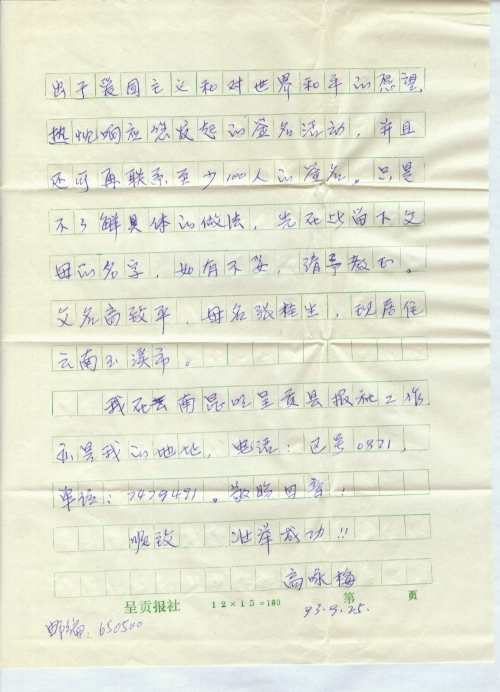 出于爱国主义和对世界和平的愿望,
热忱响应您发起的签名活动，并且
还可再联系至少100人的签名。只是
不了解具体的做法，先在此留下父
母的名字，如有不妥，请予教正。
父名高致平，母名张桂生，现居住
云南玉溪市。
我在云南昆明呈贡县报社工作.
亦是我的地址，电话：区号0871，
单位：7479491。敬盼回音！
顺致 壮举成功!!
高咏梅
呈贡报社 12×15=180 第 页
93.9.25.
邮编：650500